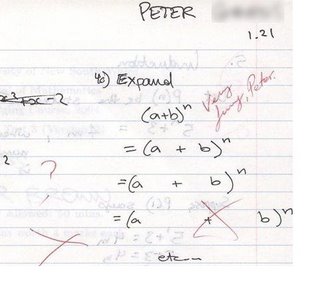 PETER
1.21
x²+x-2
4c) Expand
(a+b)ⁿ
Very funny, Peter.
= (a + b)ⁿ
2
?
= (a + b)ⁿ
= (a + b)ⁿ
etc...